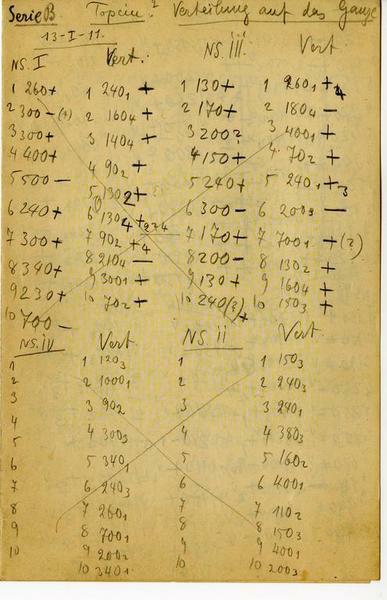 Serie B Topcin? Verteilung auf das Ganze
13-I-11.
NS. I Vert. NS. iii Vert.
1 260+ 1 240₁ + 1 130+ 1 260₁ +
2 300-(+) 2 160₄ + 2 170+ 2 180₄ -
3 300+ 3 140₄ + 3 200? 3 400₁ +
4 400+ 4 90₂ + 4 150+ 4 70₂ +
5 500- 5 130₂ + 5 240+ 5 240₁ +3
6 240+ 6 130₄ + 6 300- 6 200₃ -
7 300+ 7 90₂ +4 7 170+ 7 700₁ +(?)
8 340+ 8 210₄ - 8 200- 8 130₂ +
9 230+ 9 300₁ + 9 130+ 9 160₄ +
10 700- 10 70₂ + 10 240(?)/+ 10 150₃ +
NS. iv Vert NS. ii Vert.
1 1 120₃ 1 1 150₃
2 2 1000₁ 2 2 240₃
3 3 90₂ 3 3 240₁
4 4 300₃ 4 4 380₃
5 5 340₁ 5 5 160₂
6 6 240₃ 6 400₁
7 7 260₁ 7 7 110₂
8 8 700₁ 8 8 150₃
9 9 200₂ 9 9 400₁
10 10 340₁ 10 10 200₃